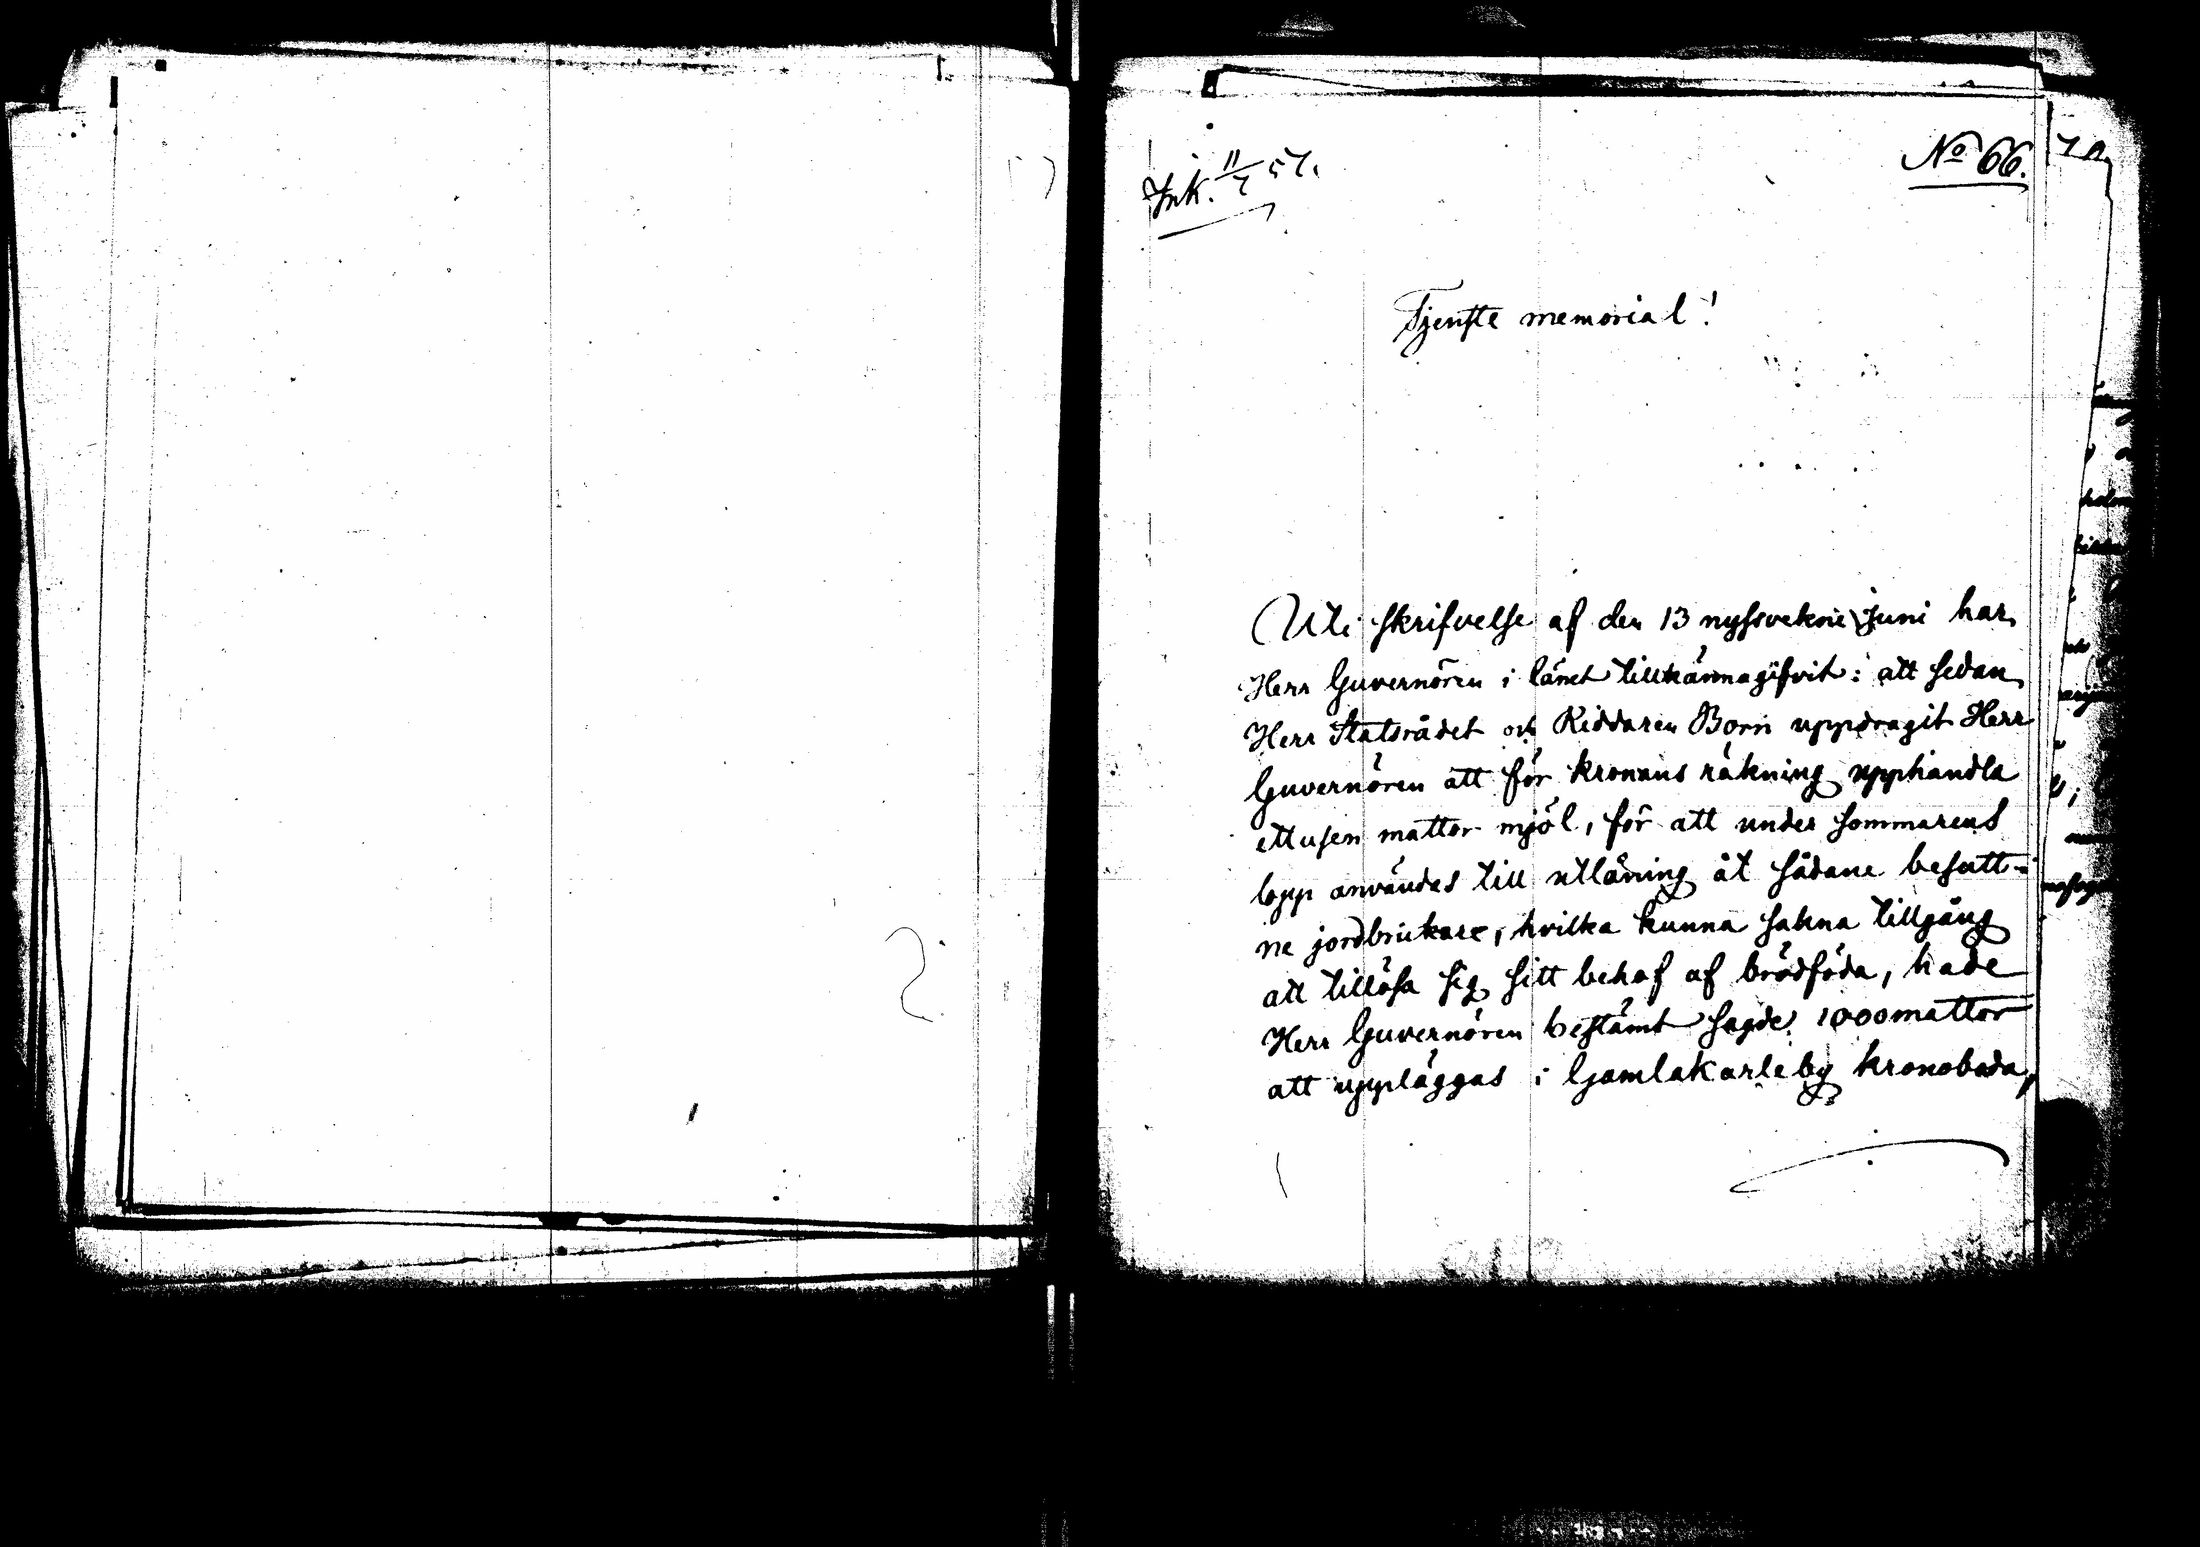 Ink. 11/7 57.
No 66.
Tjenste memorial!
Uti skrifvelse af den 13 nyssvekne Juni har
Herr Guvernören i länet tillkännagifvit: att sedan
Herr Statsrådet och Riddaren Born uppdragit Herr
Guvernören att för kronans räkning upphandla
ettusen mattor mjöl, för att under sommarens
lopp användas till utlåning åt sådane besutt-
ne jordbrukare, hvilka kunna sakna tillgång
att tillösa sig sitt behof af brödföda, hade
Herr Guvernören bestämt sagde 1000 mattor
att uppläggas i Gamlakarleby kronoboda,